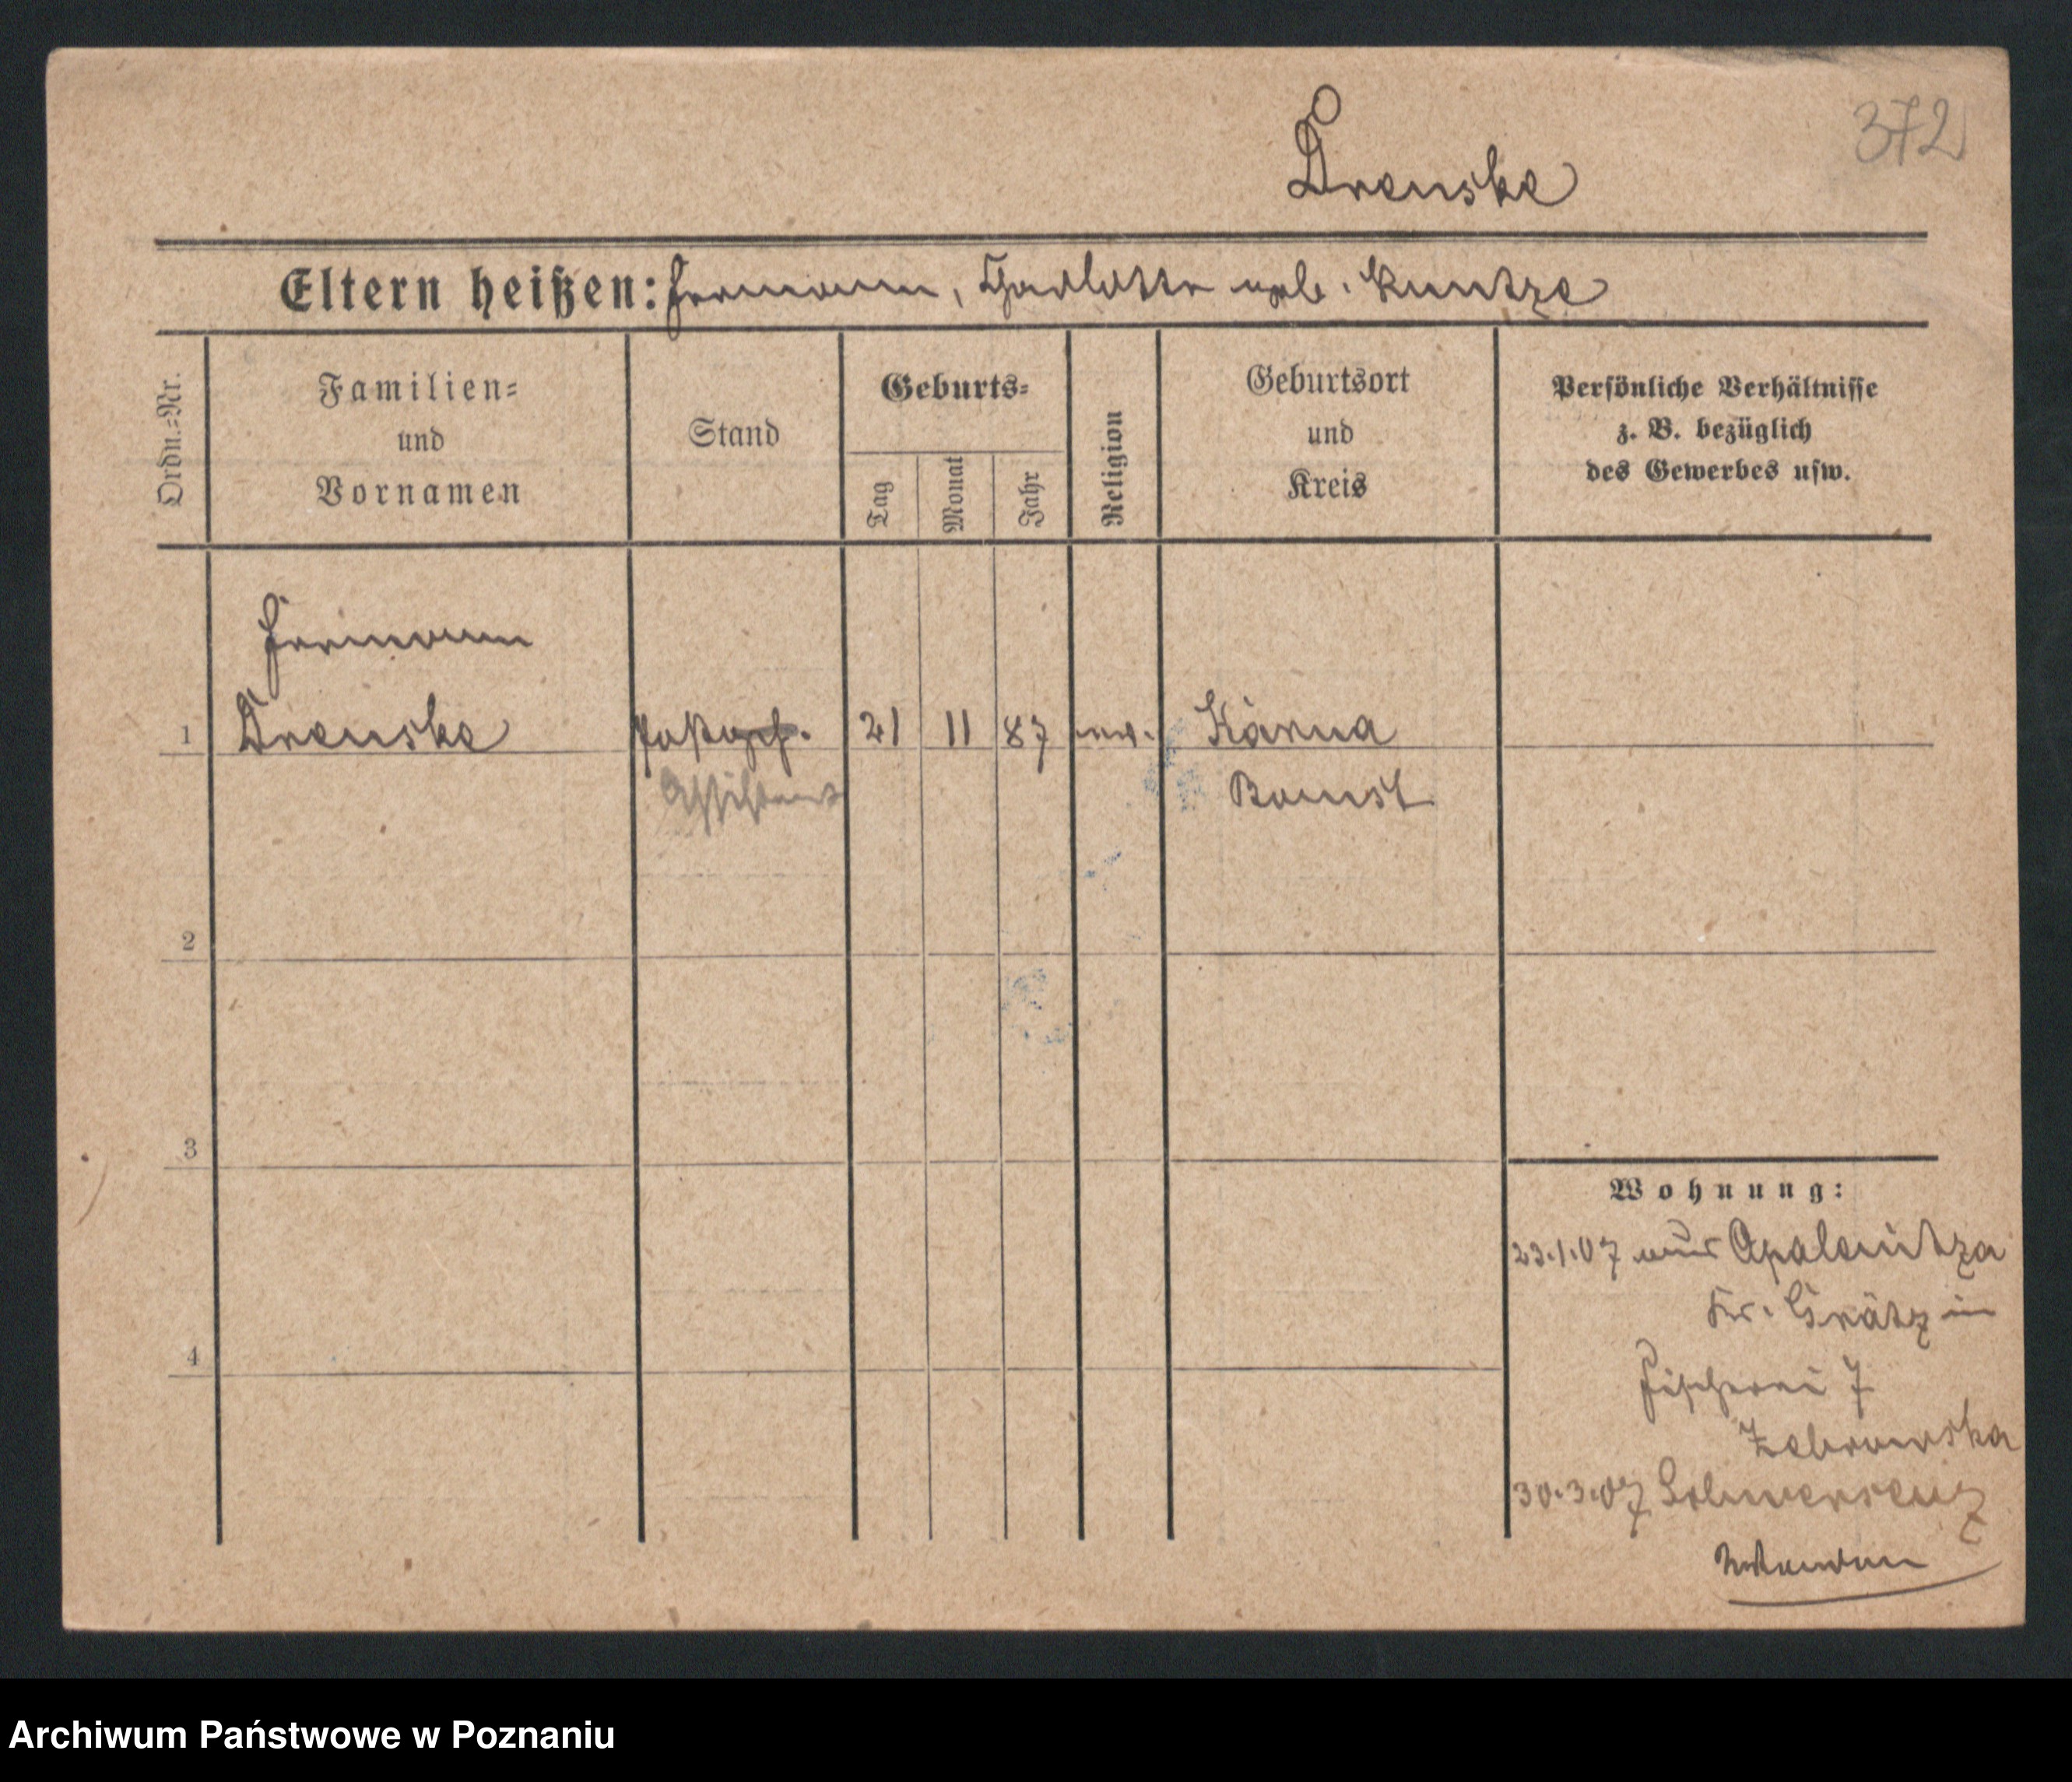 372
Drenske
Eltern heißen: Hermann, Charlotte geb. Kuntze
Ordn.-Nr.
Familien=
und
Vornamen
Stand
Geburts=
Tag
Monat
Jahr
Religion
Geburtsort
und
Kreis
Persönliche Verhältnisse
z. B. bezüglich
des Gewerbes usw.
Hermann
1 Drenske Postgeh. 21 11 87 ev. Karna
Assistent Bomst
2
3
4
Wohnung:
23.1.07 aus Opalenitza
Kr. Grätz in
Fischerei 7
Zebrowska
30.3.07 Schwersenz
Archiwum Państwowe w Poznaniu